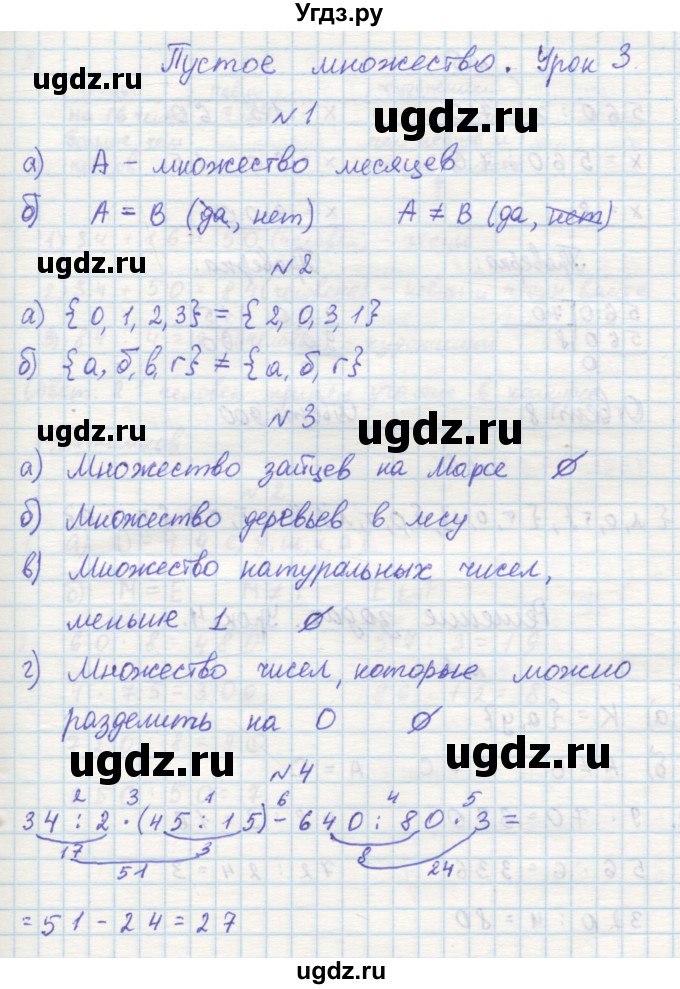 Угдз.ру
Пустое множество. Урок 3.
ugdz.ru
№1
ugdz.ru
а) А - множество месяцев
б) А = В (да, нет) А ≠ В (да, нет)
ugdz.ru
№2
а) {0, 1, 2, 3} = {2, 0, 3, 1}
б) {а, б, в, г} ≠ {а, б, г}
ugdz.ru
№3
ugdz.ru
а) Множество зайцев на Марсе ∅
б) Множество деревьев в лесу
ugdz.ru
в) Множество натуральных чисел,
меньше 1 ∅
ugdz.ru
г) Множество чисел, которые можно
разделить на 0 ∅
ugdz.ru
ugdz.ru
№4
2 3 1 6 4 5
34 : 2 · (45 : 15) - 640 : 80 · 3 =
17 3 8
51 24
= 51 - 24 = 27
ugdz.ru
ugdz.ru